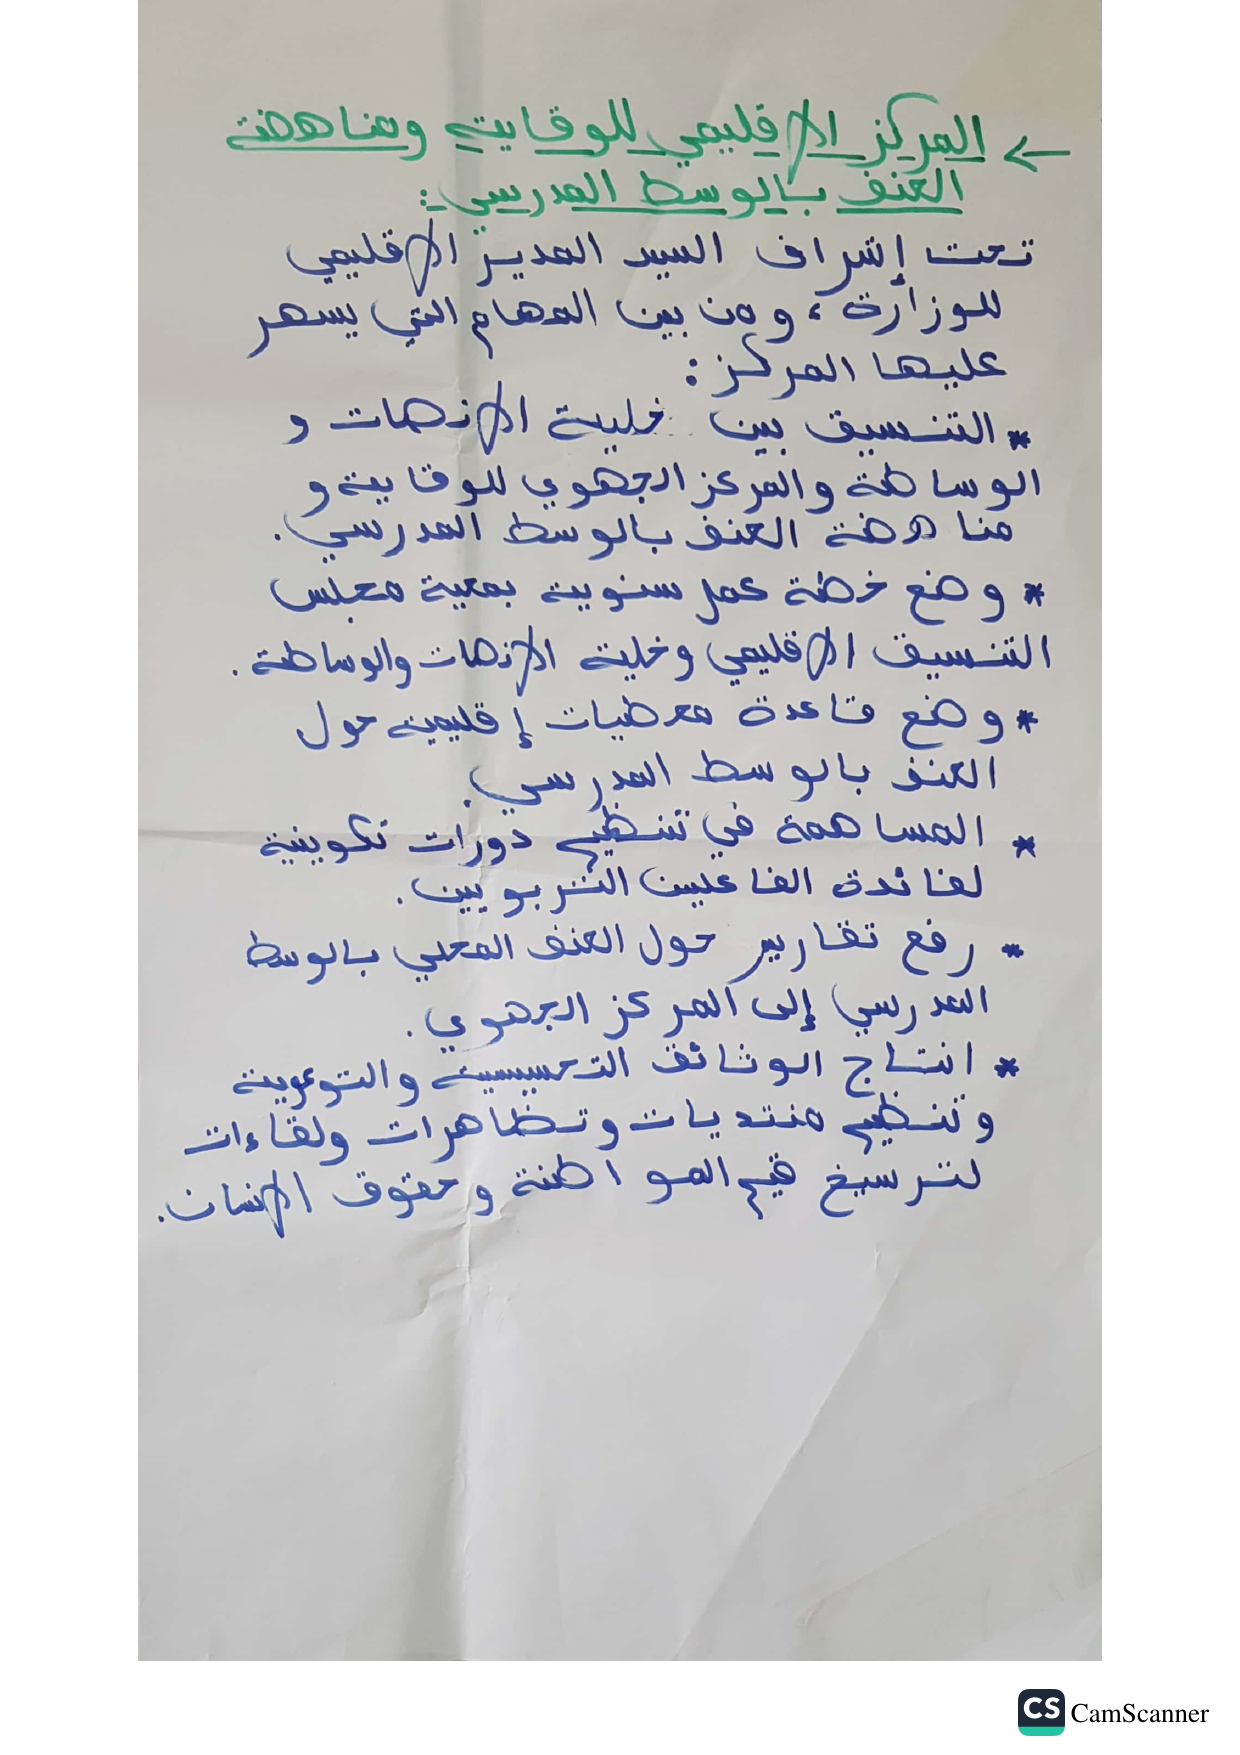 ← المركز الإقليمي للوقاية ومناهضة
العنف بالوسط المدرسي:
تحت إشراف السيد المدير الإقليمي
للوزارة، ومن بين المهام التي يسهر
عليها المركز:
* التنسيق بين خلية الإنصات و
الوساطة والمركز الجهوي للوقاية و
مناهضة العنف بالوسط المدرسي.
* وضع خطة عمل سنوية بمعية مجلس
التنسيق الإقليمي وخلية الإنصات والوساطة.
* وضع قاعدة معطيات إقليمية حول
العنف بالوسط المدرسي.
* المساهمة في تنظيم دورات تكوينية
لفائدة الفاعلين التربويين.
* رفع تقارير حول العنف المحلي بالوسط
المدرسي إلى المركز الجهوي.
* انتاج الوثائق التحسيسية والتوعوية
وتنظيم منتديات وتظاهرات ولقاءات
لترسيخ قيم المواطنة وحقوق الإنسان.
CS CamScanner